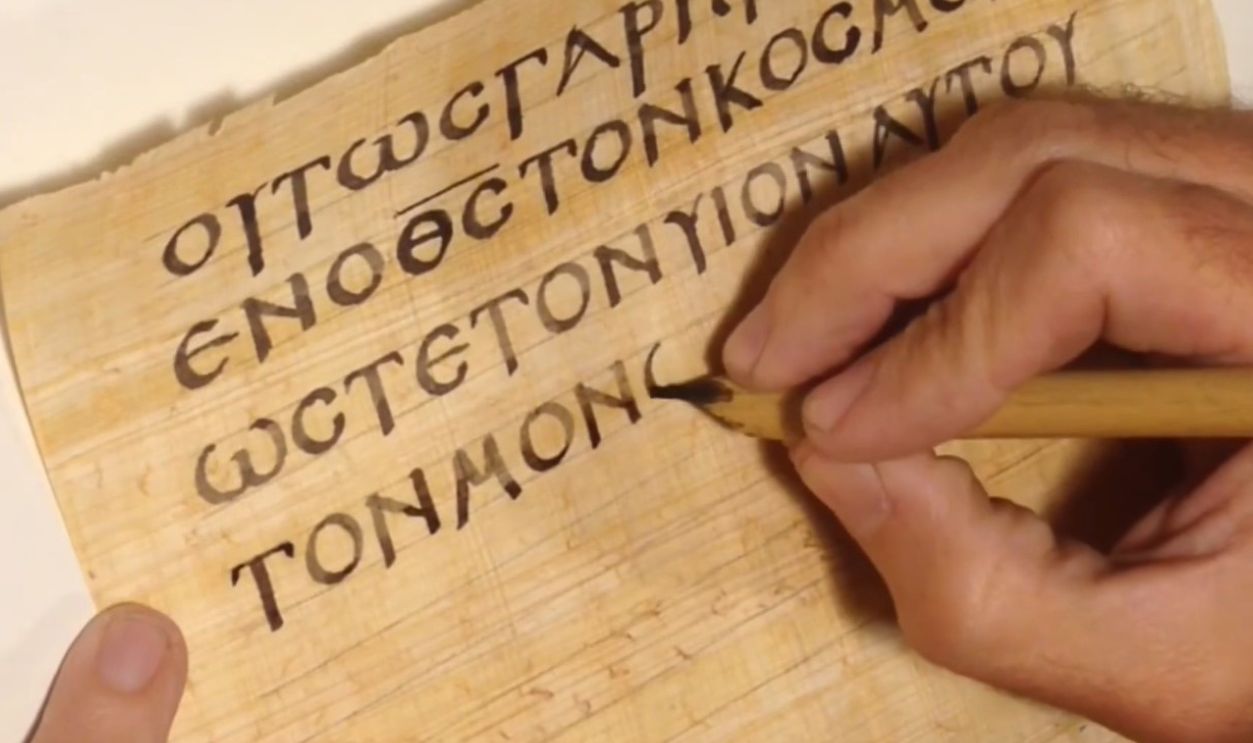 ΟΥΤΩϹΓΑΡΗ
ЄΝΟΘ̅Ϲ̅ΤΟΝΚΟϹΜΟ
ΩϹΤЄΤΟΝΥΙΟΝΑΥΤΟΥ
ΤΟΝΜΟΝ